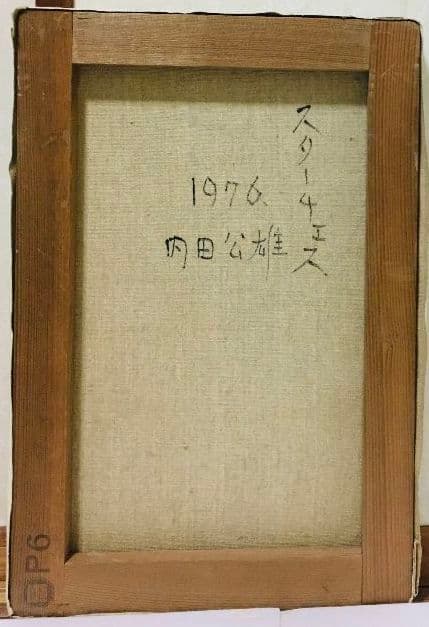 スターチェス
1976.
内田公雄
P6